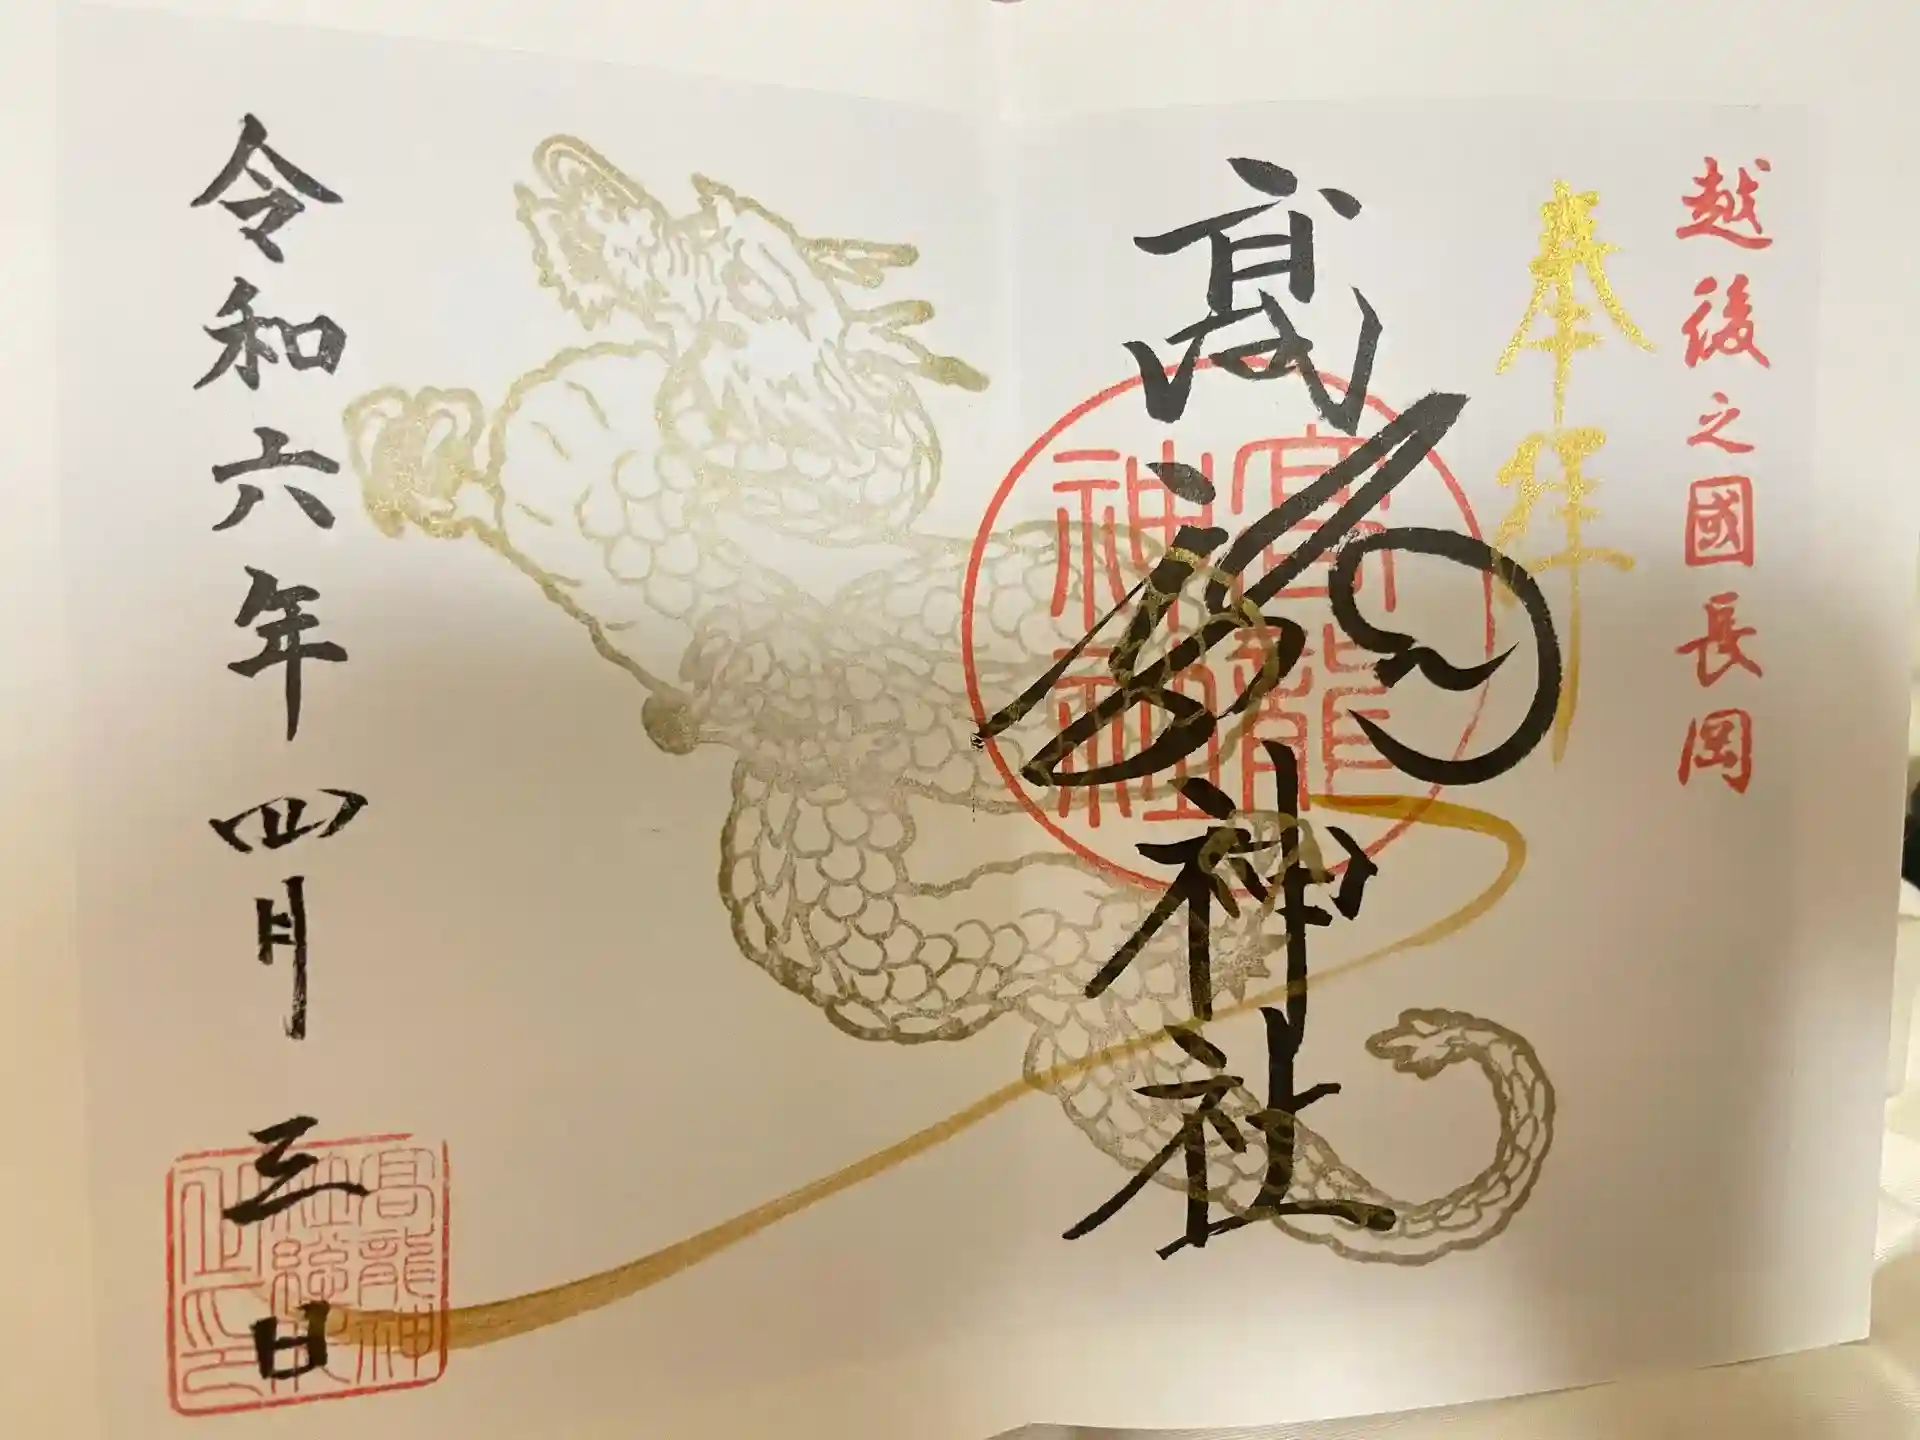 越後之國長岡
奉拝
高龍神社
高龍
神社
令和六年四月三日
高龍神
社総代